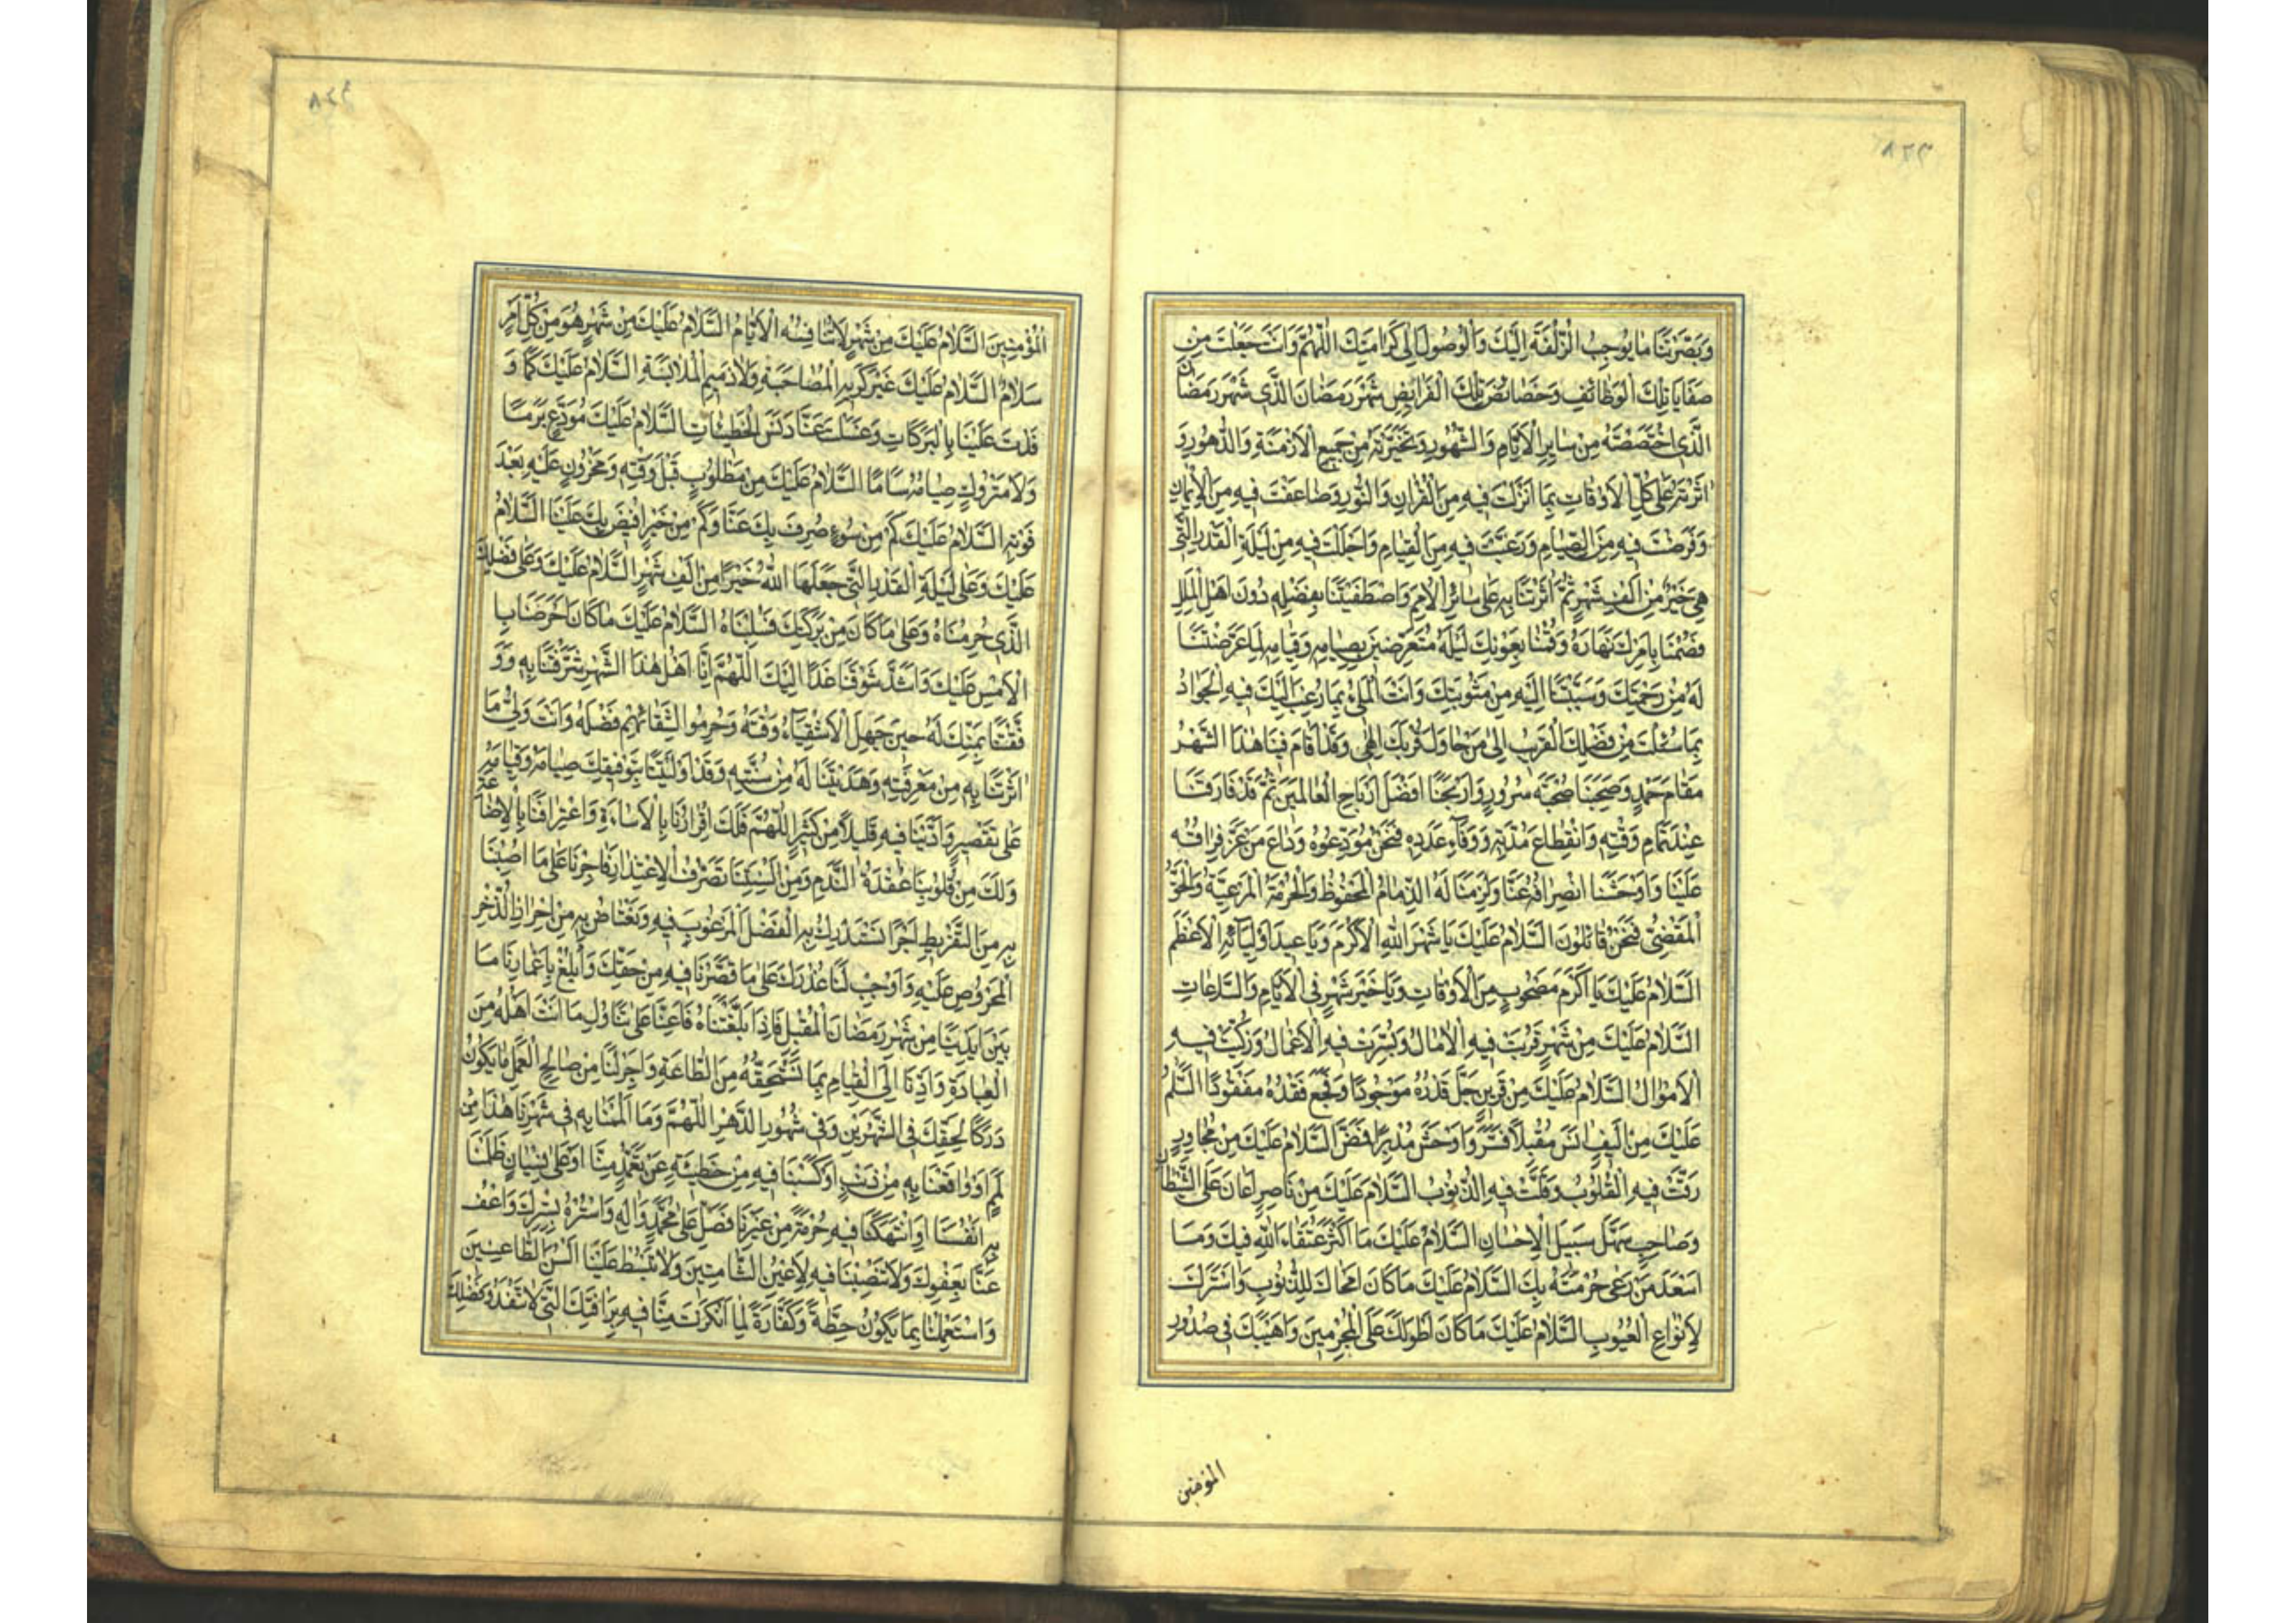 ٨٢٣
وَبَصَّرْتَنَا مَا يُوجِبُ الزُّلْفَةَ إِلَيْكَ وَالْوُصُولَ إِلَى كَرَامَتِكَ اللّٰهُمَّ وَأَنْتَ جَعَلْتَ مِنْ
صَفَايَا تِلْكَ الْوَظَائِفِ وَخَصَائِصِ تِلْكَ الْفَرَائِضِ شَهْرَ رَمَضَانَ الَّذِي شَهْرَ رَمَضَانَ
الَّذِي اخْتَصَصْتَهُ مِنْ سَايِرِ الْأَيَّامِ وَالشُّهُورِ وَتَخَيَّرْتَهُ مِنْ جَمِيعِ الْأَزْمِنَةِ وَالدُّهُورِ وَ
اٰثَرْتَهُ عَلَى كُلِّ الْأَوْقَاتِ بِمَا أَنْزَلْتَ فِيهِ مِنَ الْقُرْاٰنِ وَالنُّورِ وَضَاعَفْتَ فِيهِ مِنَ الْإِيمَانِ
وَفَرَضْتَ فِيهِ مِنَ الصِّيَامِ وَرَغَّبْتَ فِيهِ مِنَ الْقِيَامِ وَأَجْلَلْتَ فِيهِ مِنْ لَيْلَةِ الْقَدْرِ الَّتِي
هِيَ خَيْرٌ مِنْ أَلْفِ شَهْرٍ ثُمَّ اٰثَرْتَنَا بِهِ عَلَى سَائِرِ الْأُمَمِ وَاصْطَفَيْتَنَا بِفَضْلِهِ دُونَ أَهْلِ الْمِلَلِ
فَصُمْنَا بِأَمْرِكَ نَهَارَهُ وَقُمْنَا بِعَوْنِكَ لَيْلَهُ مُتَعَرِّضِينَ بِصِيَامِهِ وَقِيَامِهِ لِمَا عَرَّضْتَنَا
لَهُ مِنْ رَحْمَتِكَ وَسَبَّبْتَنَا إِلَيْهِ مِنْ مَثُوبَتِكَ وَأَنْتَ الْمَلِيءُ بِمَا رُغِبَ إِلَيْكَ فِيهِ الْجَوَادُ
بِمَا سُئِلْتَ مِنْ فَضْلِكَ الْقَرِيبُ إِلَى مَنْ حَاوَلَ قُرْبَكَ إِلٰهِي وَقَدْ أَقَامَ فِينَا هٰذَا الشَّهْرُ
مَقَامَ حَمْدٍ وَصَحِبَنَا صُحْبَةَ سُرُورٍ وَأَرْبَحَنَا أَفْضَلَ أَرْبَاحِ الْعَالَمِينَ ثُمَّ قَدْ فَارَقَنَا
عِنْدَ تَمَامِ وَقْتِهِ وَانْقِطَاعِ مُدَّتِهِ وَوَفَاءِ عَدَدِهِ فَنَحْنُ مُوَدِّعُوهُ وَدَاعَ مَنْ عَزَّ فِرَاقُهُ
عَلَيْنَا وَأَوْحَشَنَا انْصِرَافُهُ عَنَّا وَلَزِمَنَا لَهُ الذِّمَامُ الْمَحْفُوظُ وَالْحُرْمَةُ الْمَرْعِيَّةُ وَالْحَقُّ
الْمَقْضِيُّ فَنَحْنُ قَائِلُونَ السَّلَامُ عَلَيْكَ يَا شَهْرَ اللّٰهِ الْأَكْرَمَ وَيَا عِيدَ أَوْلِيَائِهِ الْأَعْظَمَ
السَّلَامُ عَلَيْكَ يَا أَكْرَمَ مَصْحُوبٍ مِنَ الْأَوْقَاتِ وَيَا خَيْرَ شَهْرٍ فِي الْأَيَّامِ وَالسَّاعَاتِ
السَّلَامُ عَلَيْكَ مِنْ شَهْرٍ قَرُبَتْ فِيهِ الْاٰمَالُ وَيُسِّرَتْ فِيهِ الْأَعْمَالُ وَزَكَتْ فِيهِ
الْأَمْوَالُ السَّلَامُ عَلَيْكَ مِنْ قَرِينٍ جَلَّ قَدْرُهُ مَوْجُودًا وَفَجَّعَ فَقْدُهُ مَفْقُودًا السَّلَامُ
عَلَيْكَ مِنْ أَلِيفٍ اٰنَسَ مُقْبِلًا فَسَرَّ وَأَوْحَشَ مُدْبِرًا فَمَضَّ السَّلَامُ عَلَيْكَ مِنْ مُجَاوِرٍ
رَقَّتْ فِيهِ الْقُلُوبُ وَقَلَّتْ فِيهِ الذُّنُوبُ السَّلَامُ عَلَيْكَ مِنْ نَاصِرٍ أَعَانَ عَلَى الشَّيْطَانِ
وَصَاحِبٍ سَهَّلَ سَبِيلَ الْإِحْسَانِ السَّلَامُ عَلَيْكَ مَا أَكْثَرَ عُتَقَاءَ اللّٰهِ فِيكَ وَمَا
أَسْعَدَ مَنْ رَعَى حُرْمَتَهُ بِكَ السَّلَامُ عَلَيْكَ مَا كَانَ أَمْحَاكَ لِلذُّنُوبِ وَأَسْتَرَكَ
لِأَنْوَاعِ الْعُيُوبِ السَّلَامُ عَلَيْكَ مَا كَانَ أَطْوَلَكَ عَلَى الْمُجْرِمِينَ وَأَهْيَبَكَ فِي صُدُورِ
المؤمنين
٨٢٤
الْمُؤْمِنِينَ السَّلَامُ عَلَيْكَ مِنْ شَهْرٍ لَا تُنَافِسُهُ الْأَيَّامُ السَّلَامُ عَلَيْكَ مِنْ شَهْرٍ هُوَ مِنْ كُلِّ أَمْرٍ
سَلَامٌ السَّلَامُ عَلَيْكَ غَيْرَ كَرِيهِ الْمُصَاحَبَةِ وَلَا ذَمِيمِ الْمُلَابَسَةِ السَّلَامُ عَلَيْكَ كَمَا وَ
فَدْتَ عَلَيْنَا بِالْبَرَكَاتِ وَغَسَلْتَ عَنَّا دَنَسَ الْخَطِيئَاتِ السَّلَامُ عَلَيْكَ غَيْرَ مُوَدَّعٍ بَرَمًا
وَلَا مَتْرُوكٍ صِيَامُهُ سَأَمًا السَّلَامُ عَلَيْكَ مِنْ مَطْلُوبٍ قَبْلَ وَقْتِهِ وَمَحْزُونٍ عَلَيْهِ بَعْدَ
فَوْتِهِ السَّلَامُ عَلَيْكَ كَمْ مِنْ سُوءٍ صُرِفَ بِكَ عَنَّا وَكَمْ مِنْ خَيْرٍ أُفِيضَ بِكَ عَلَيْنَا السَّلَامُ
عَلَيْكَ وَعَلَى لَيْلَةِ الْقَدْرِ الَّتِي جَعَلَهَا اللّٰهُ خَيْرًا مِنْ أَلْفِ شَهْرٍ السَّلَامُ عَلَيْكَ وَعَلَى فَضْلِكَ
الَّذِي حُرِمْنَاهُ وَعَلَى مَا كَانَ مِنْ بَرَكَتِكَ سُلِبْنَاهُ السَّلَامُ عَلَيْكَ مَا كَانَ أَحْرَصَنَا بِا
لْأَمْسِ عَلَيْكَ وَأَشَدَّ شَوْقَنَا غَدًا إِلَيْكَ اللّٰهُمَّ إِنَّا أَهْلُ هٰذَا الشَّهْرِ شَرَّفْتَنَا بِهِ وَوَ
فَّقْتَنَا بِمَنِّكَ لَهُ حِينَ جَهِلَ الْأَشْقِيَاءُ وَقْتَهُ وَحُرِمُوا لِشَقَائِهِمْ فَضْلَهُ وَأَنْتَ وَلِيُّ مَا
اٰثَرْتَنَا بِهِ مِنْ مَعْرِفَتِهِ وَهَدَيْتَنَا لَهُ مِنْ سُنَّتِهِ وَقَدْ تَوَلَّيْنَا بِتَوْفِيقِكَ صِيَامَهُ وَقِيَامَهُ
عَلَى تَقْصِيرٍ وَأَدَّيْنَا فِيهِ قَلِيلًا مِنْ كَثِيرٍ اللّٰهُمَّ فَلَكَ إِقْرَارُنَا بِالْإِسَاءَةِ وَاعْتِرَافُنَا بِالْإِضَاعَةِ
وَلَكَ مِنْ قُلُوبِنَا عُقْدَةُ النَّدَمِ وَمِنْ أَلْسِنَتِنَا تَصَرُّفُ الْإِعْتِذَارِ فَأْجُرْنَا عَلَى مَا أَصَبْنَا
بِهِ مِنَ التَّفْرِيطِ أَجْرًا نَسْتَدْرِكُ بِهِ الْفَضْلَ الْمَرْغُوبَ فِيهِ وَنَعْتَاضُ بِهِ مِنْ إِحْرَازِ الذُّخْرِ
الْمَحْرُوصِ عَلَيْهِ وَأَوْجِبْ لَنَا عُذْرَكَ عَلَى مَا قَصَّرْنَا فِيهِ مِنْ حَقِّكَ وَأَبْلِغْ بِأَعْمَارِنَا مَا
بَيْنَ أَيْدِينَا مِنْ شَهْرِ رَمَضَانَ الْمُقْبِلِ فَإِذَا بَلَّغْتَنَاهُ فَأَعِنَّا عَلَى تَنَاوُلِ مَا أَنْتَ أَهْلُهُ مِنَ
الْعِبَادَةِ وَأَدِّنَا إِلَى الْقِيَامِ بِمَا نَسْتَحِقُّهُ مِنَ الطَّاعَةِ وَأَجْرِ لَنَا مِنْ صَالِحِ الْعَمَلِ مَا يَكُونُ
دَرَكًا لِحَقِّكَ فِي الشَّهْرَيْنِ وَفِي شُهُورِ الدَّهْرِ اللّٰهُمَّ وَمَا أَلْمَمْنَا بِهِ فِي شَهْرِنَا هٰذَا مِنْ
لَمَمٍ أَوْ وَاقَعْنَا بِهِ مِنْ ذَنْبٍ أَوْ كَسَبْنَا فِيهِ مِنْ خَطِيئَةٍ عَنْ تَعَمُّدٍ مِنَّا أَوْ عَلَى نِسْيَانٍ ظَلَمْنَا
بِهِ أَنْفُسَنَا أَوِ انْتَهَكْنَا فِيهِ حُرْمَةً مِنْ غَيْرِنَا فَصَلِّ عَلَى مُحَمَّدٍ وَاٰلِهِ وَاسْتُرْهُ بِسِتْرِكَ وَاعْفُ
عَنَّا بِعَفْوِكَ وَلَا تَنْصِبْنَا فِيهِ لِأَعْيُنِ الشَّامِتِينَ وَلَا تَبْسُطْ عَلَيْنَا أَلْسُنَ الطَّاعِنِينَ
وَاسْتَعْمِلْنَا بِمَا يَكُونُ حِطَّةً وَكَفَّارَةً لِمَا أَنْكَرْتَ مِنَّا فِيهِ بِرَأْفَتِكَ الَّتِي لَا تَنْفَدُ وَفَضْلِكَ